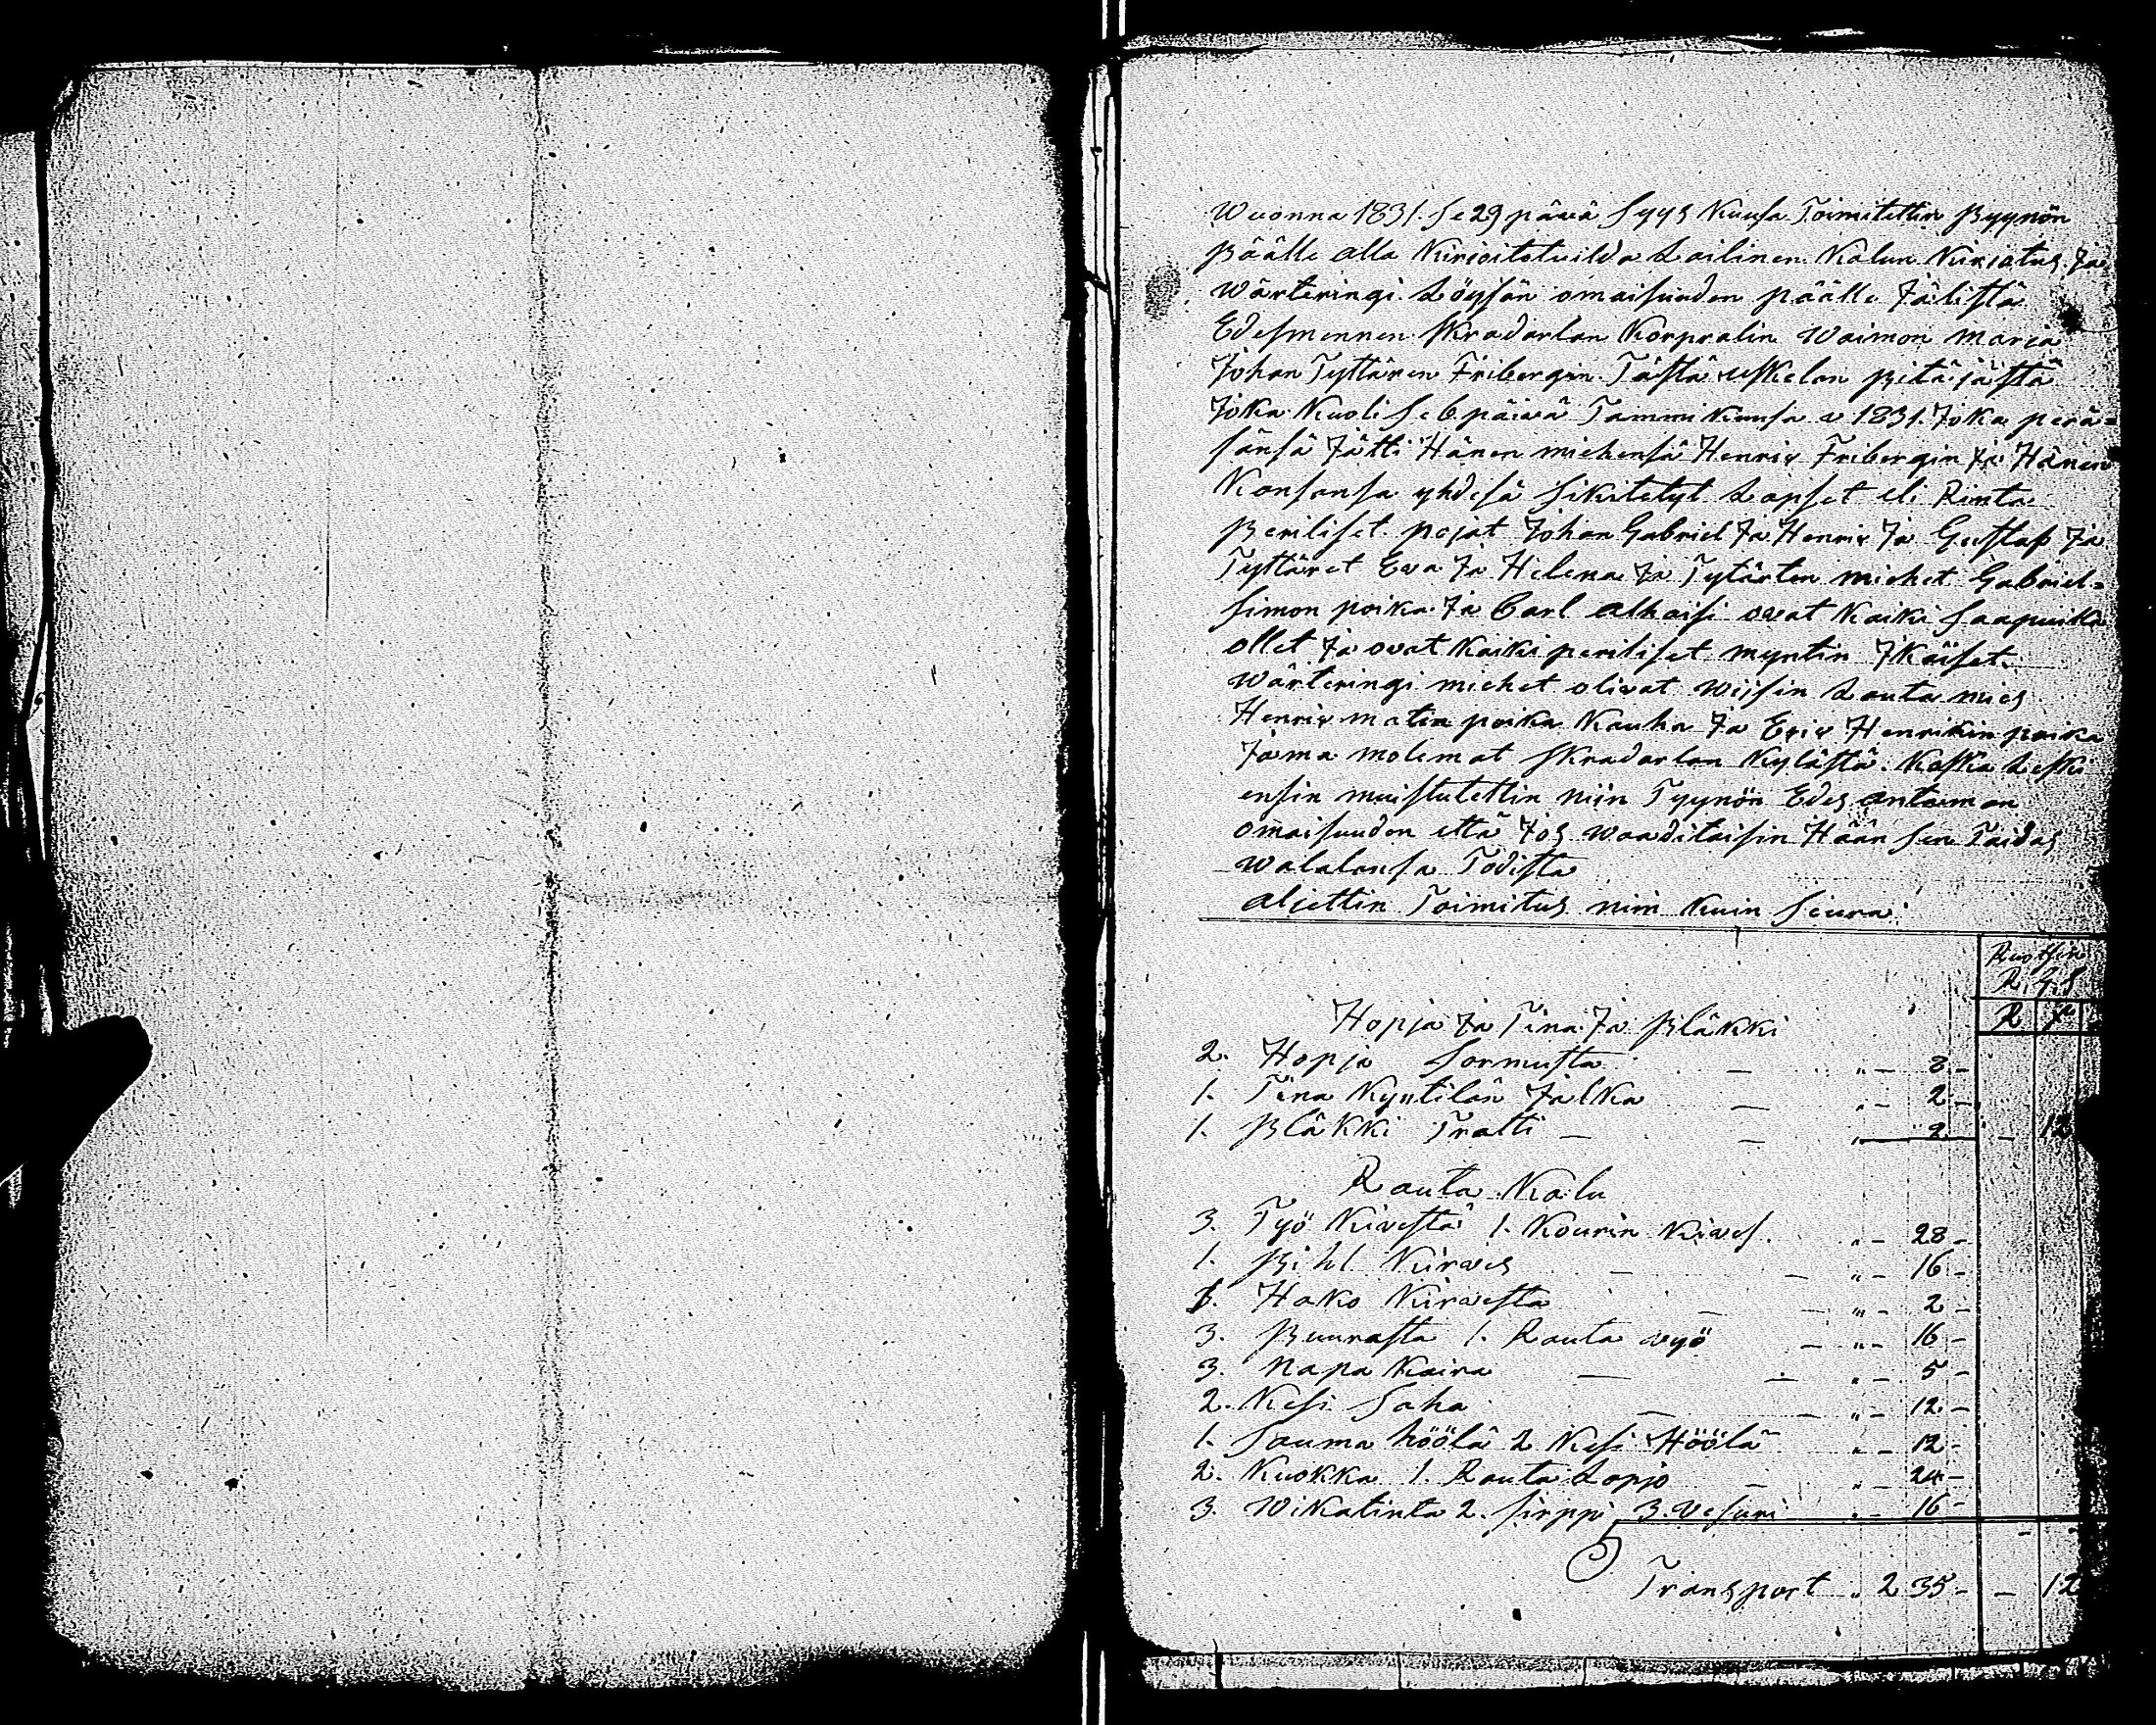 Wuonna 1831. se 29 päivä Syys Kuusa Toimitettin Pyynön
Päälle alla Kirioitetuilda Lailinen Kalun Kiriotus Ja
Wärteringi Löysän omaisuuden päälle Jälistä
Edesmennen Skradarlan Korpralin Waimon Maria
Johan Tyttären Fribergin Tästä uskelan Pitäjästä
Joka Kuoli Se 6 päivä Tammi Kuusa v 1831. Joka perä=
sänsä Jätti Hänen miehensä Henrix Fribergin Ja Hänen
Kansansa yhdesä Sikitetyt Lapset eli Rinta
Periliset. pojat Johan Gabriel Ja Henrix Ja Gustaf Ja
Tyttäret Eva Ja Helena Ja Tytärten miehet Gabriel=
Simon poika Ja Carl Alhaisi ovat Kaiki Saapuilla
ollet Ja ovat Kaiki periliset myntin Ikäiset.
Wärteringi miehet olivat Wiisin Lauta mies
Henrix Matin poika Kauha Ja Erix Henrikin poika
Jäma molemat Skradarlan Kylästä. Koska Leski
ensin muistutettin niin Tyynön Edes antaman
omaisuuden että Jos waaditaisin Hään sen Taidas
walalansa Todista
aljettin Toimitus niin Kuin Seura:
Ruotsin
R. G. S
R
Hopja Ja Tina Ja Pläkki
2. Hopja Sormusta — „ — 8 —
1. Tina Kyntilän Jalka — „ — 2 —
1. Pläkki Tratti — — „ — 2 — 12
Rauta Kalu
3. Työ Kirvestä 1. Kourin Kirves. „ — 28 —
1. Pihl Kirves — — „ — 16 —
1. Hako Kirvesta — — „ — 2 —
3. Puurasta 1. Rauta vyö — „ — 16 —
3. Napa Kaira — — „ — 5 —
2. Kesi Saha — — „ — 12. —
1. Sauma höölä 2 Kesi Höölä „ — 12 —
2. Kuokka 1. Rauta Lapjo — „ — 24 —
3. Wikatinta 2. Sirppi 3. Vesuri „ — 16 —
Transport „ 2 35 — — 12